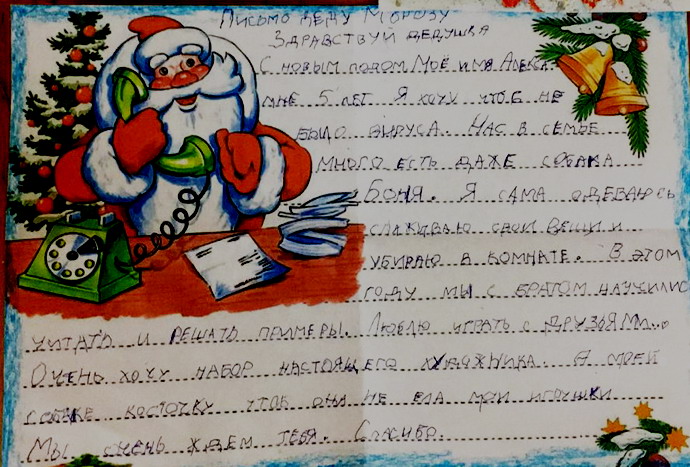 Письмо Деду Морозу
Здравствуй дедушка
С новым годом Моё имя Алекса.
мне 5 лет. Я хочу чтоб не
было вируса. Нас в семье
много есть даже собака
Боня. Я сама одеваюсь
слаживаю свои вещи и
убираю в комнате. В этом
году мы с братом научилис
читать и решать примеры. Люблю играть с друзьями...
Очень хочу набор настоящего художника. А моей
собаке косточку чтоб она не ела мои игрушки
Мы очень ждем тебя. Спасибо.